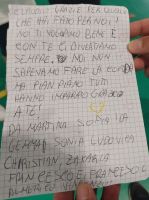 GRAZIE PER QUELLO
CHE HAI FATTO PER NOI!
NOI TI VOGLIAMO BENE E
CON TE CI DIVERTIAMO
SEMPRE. NOI NON
SAPEVAMO FARE LA
MA PIAN PIANO
HANNO IMPARATO GRAZIE
A TE!
DA MARTINA SOFIA
GEMMA SONIA LUDOVICA
CHRISTIAN, ZAKARIA
FRANCESCO E FRANCESCO